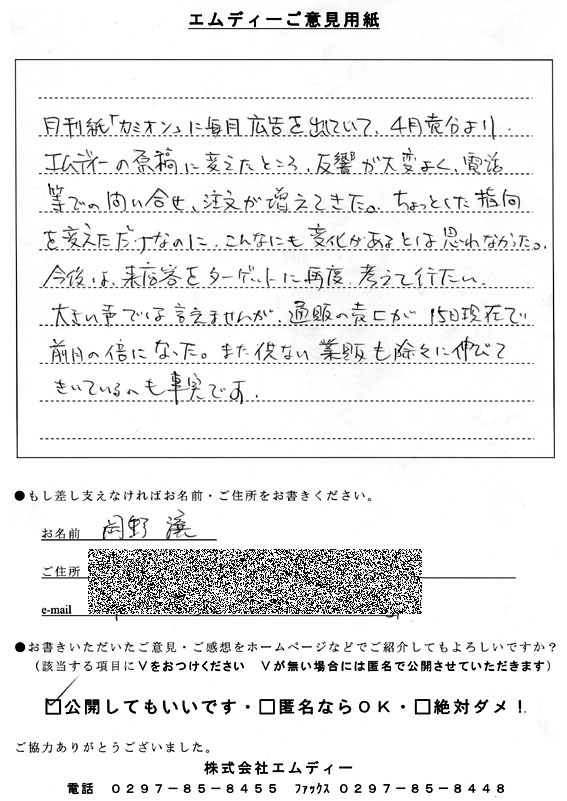 エムディーご意見用紙
月刊紙「カミオン」に毎月広告を出していて、4月発売分より、
エムディーの原稿に変えたところ、反響が大変よく、電話
等での問い合せ、注文が増えてきた。ちょっとした指向
を変えただけなのに、こんなにも変化があるとは思れなかった。
今後は、来店客をターゲットに再度、考えて行たい。
大きい声では言えませんが、通販の売上が15日現在で
前月の倍になった。また 業販も除々に伸びて
きいているのも事実です。
●もし差し支えなければお名前・ご住所をお書きください。
お名前 岡野 譲
ご住所
e-mail
●お書きいただいたご意見・ご感想をホームページなどでご紹介してもよろしいですか？
（該当する項目にＶをおつけください Ｖが無い場合には匿名で公開させていただきます）
☑公開してもいいです・□匿名ならＯＫ・□絶対ダメ！
ご協力ありがとうございました。
株式会社エムディー
電話 ０２９７－８５－８４５５ ﾌｧｯｸｽ ０２９７－８５－８４４８